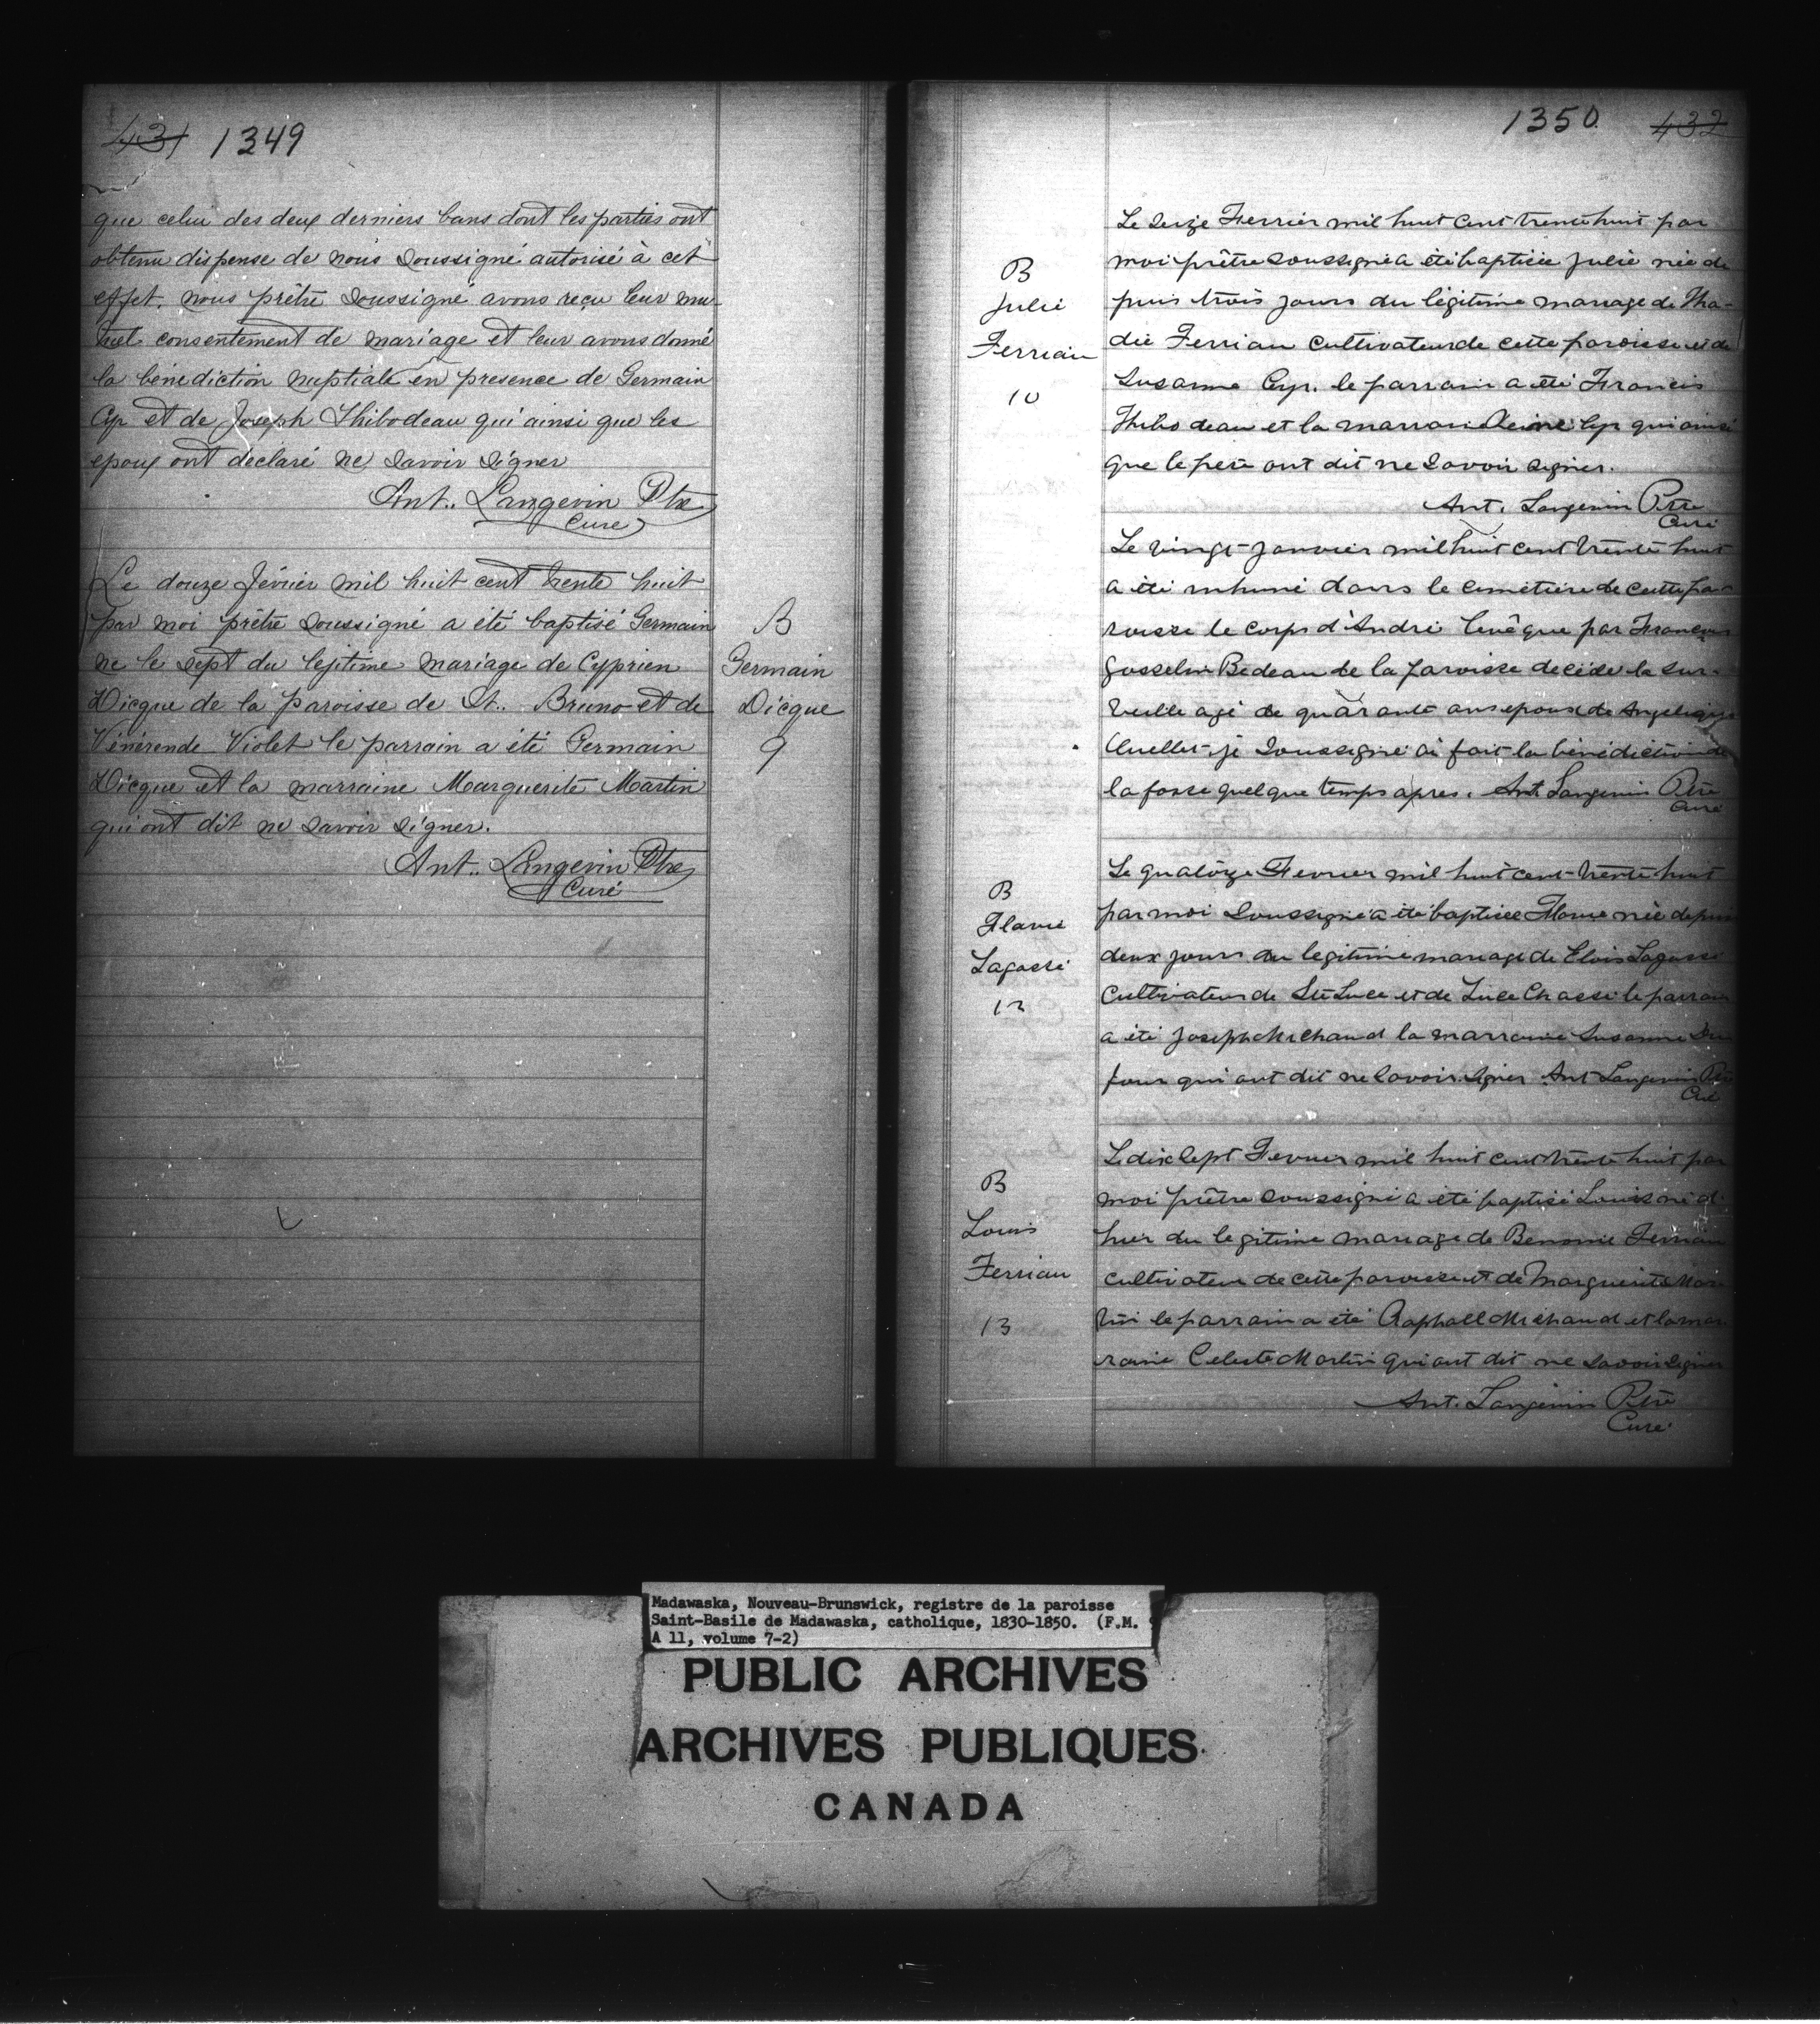 431 1349
que celui des deux derniers bans dont les parties ont
obtenu dispense de nous soussigné autorisé à cet
effet, nous prêtre soussigné avons reçu leur mu-
tuel consentement de mariage et leur avons donné
la bénediction nuptiale en presence de Germain
Cyr et de Joseph Thibodeau qui ainsi que les
epoux ont declaré ne savoir signer
Ant.. Langevin Ptre
Curé
Le douze février mil huit cent trente huit
par moi prêtre soussigné a été baptisé Germain
ne le sept du legitime mariage de Cyprien
Dicque de la paroisse de St.. Bruno et de
Vénérende Violet le parrain a été Germain
Dicque et la marraine Marguerite Martin
qui ont dit ne savoir signer.
Ant.. Langevin Ptre
Curé
B
Germain
Dicque
9
1350 432
Le seize Fevrier mil huit cent trente huit par
moi prêtre soussigné a été baptisée Julie née de
puis trois jours du légitime mariage de Tha-
dée Terriau cultivateur de cette paroisse et de
Susanne Cyr. le parrain a été Francis
Thibodeau et la marraine Reine Cyr qui ainsi
que le pere ont dit ne savoir signer.
Ant. Langevin Ptre
Curé
B
Julie
Terriau
10
Le vingt janvier mil huit cent trente huit
a été inhumé dans le cimetière de cette pa-
roisse le corps d'André levêque par François
Gosselin Bedeau de la paroisse decédé la sur-
veille agé de quarante ans epoux de Angelique
Ouellet je soussigné ai fait la bénédiction de
la fosse quelque temps apres. Ant. Langevin Ptre
Curé
B
Flavie
Lagassé
12
Le quatorze Fevrier mil huit cent trente huit
par moi soussigné a été baptisée Flavie née depuis
deux jours du legitime mariage de Elois Lagassé
Cultivateur de Ste Luce et de Luce Chassé le parrain
a été Joseph Michaud la marraine Susanne Du
four qui ont dit ne savoir signer Ant Langevin Ptre
Curé
B
Louis
Terriau
13
Le dix sept Fevrier mil huit cent trente huit par
moi prêtre soussigné a été baptisé Louis né d'
hier du legitime mariage de Benonie Terriau
cultivateur de cette paroisse et de Marguerite Mar
tin le parrain a été Raphael Michaud et la mar
raine Celeste Martin qui ont dit ne savoir signer
Ant. Langevin Ptre
Curé
Madawaska, Nouveau-Brunswick, registre de la paroisse
Saint-Basile de Madawaska, catholique, 1830-1850. (F.M. 9
A 11, volume 7-2)
PUBLIC ARCHIVES
ARCHIVES PUBLIQUES
CANADA